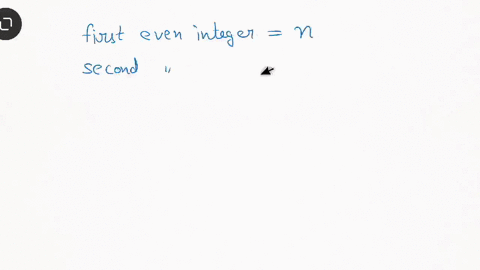 first even integer = n
second "